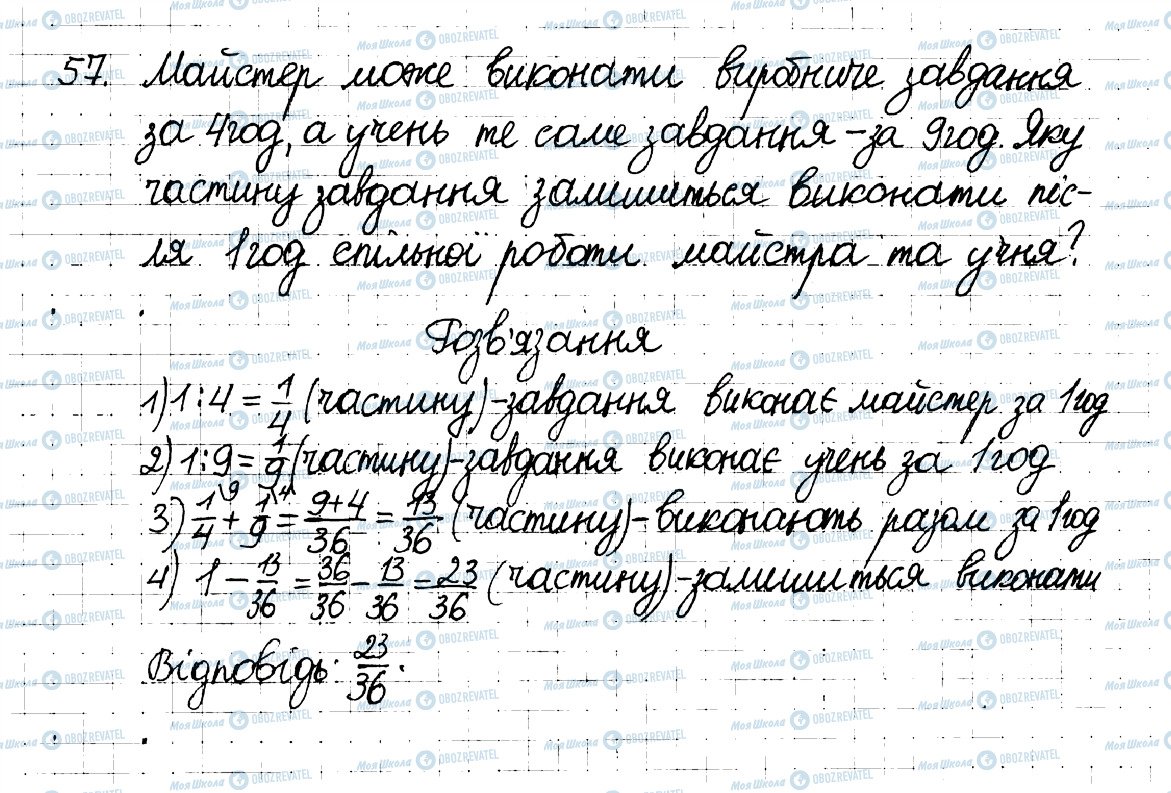 57. Майстер може виконати виробниче завдання
за 4 год, а учень те саме завдання – за 9 год. Яку
частину завдання залишиться виконати піс-
ля 1 год спільної роботи майстра та учня?
Розв'язання
1) 1 : 4 = 1/4 (частину) - завдання виконає майстер за 1 год
2) 1 : 9 = 1/9 (частину) - завдання виконає учень за 1 год
3) 1/4 \9 + 1/9 \4 = (9+4)/36 = 13/36 (частину) - виконають разом за 1 год
4) 1 - 13/36 = 36/36 - 13/36 = 23/36 (частину) - залишиться виконати
Відповідь: 23/36.